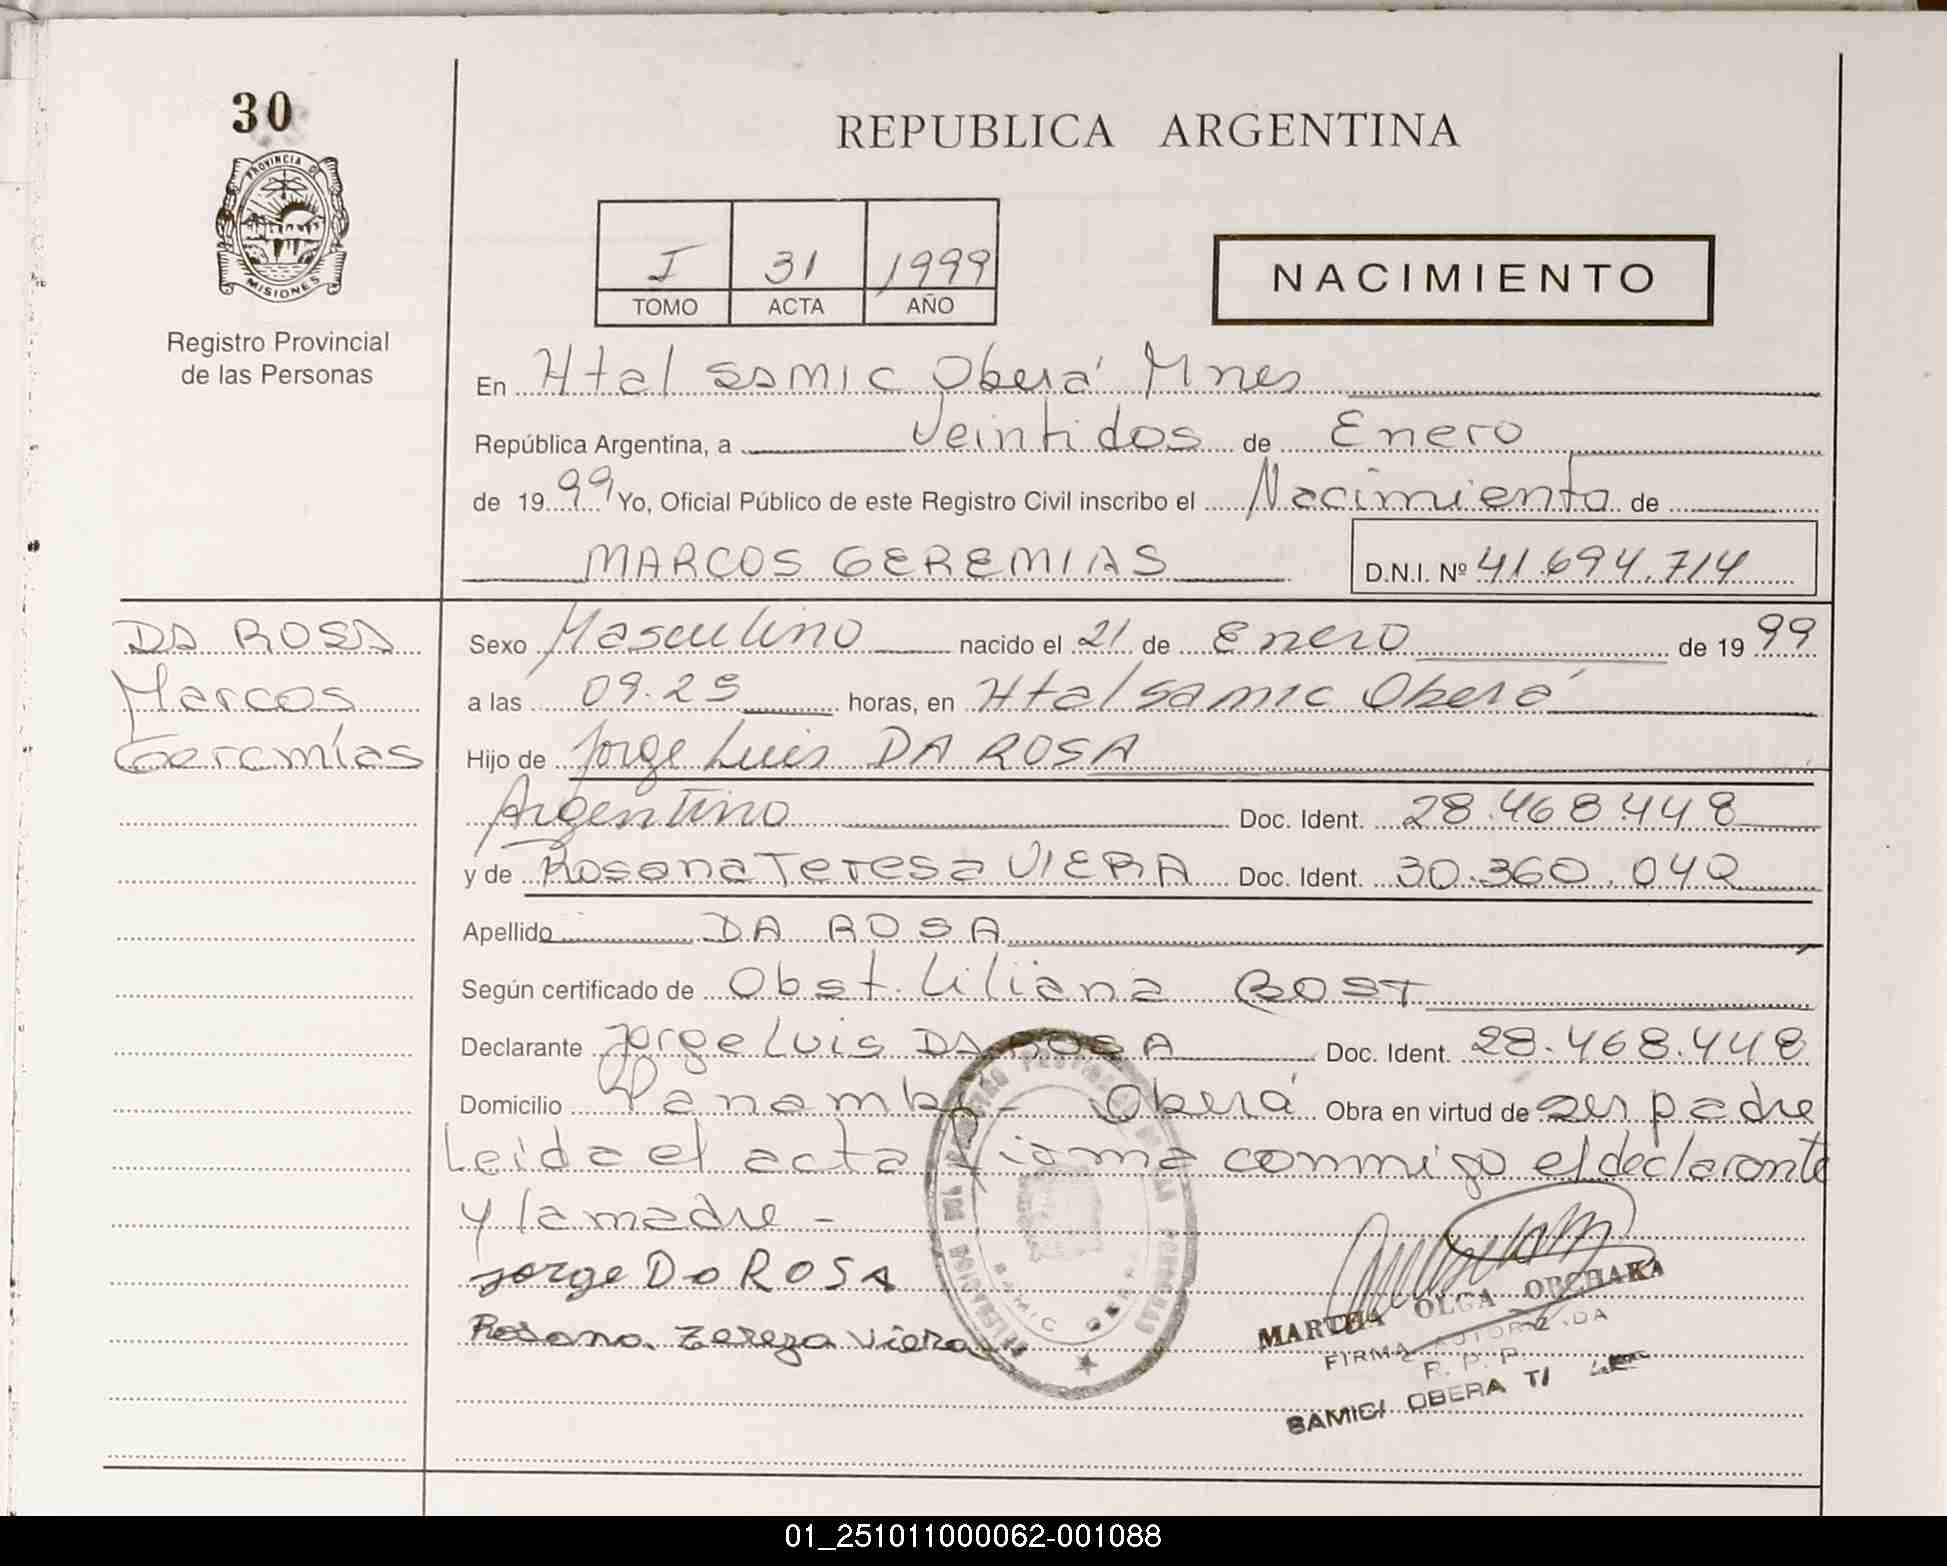 30
PROVINCIA D
MISIONES
Registro Provincial
de las Personas
REPUBLICA ARGENTINA
I 31 1999
TOMO ACTA AÑO
NACIMIENTO
En Htal SAMIC Oberá Mnes
República Argentina, a Veintidos de Enero
de 1999 Yo, Oficial Público de este Registro Civil inscribo el Nacimiento de
MARCOS GEREMIAS D.N.I. Nº 41.694.714
DA ROSA
Marcos
Geremías
Sexo Masculino nacido el 21 de Enero de 1999
a las 09.25 horas, en Htal Samic Oberá
Hijo de Jorge Luis DA ROSA
Argentino Doc. Ident. 28.468.448
y de Rosana Teresa VIERA Doc. Ident. 30.360.042
Apellido DA ROSA
Según certificado de Obst. Liliana BOST
Declarante Jorge Luis DA ROSA Doc. Ident. 28.468.448
Domicilio Panambí - Oberá Obra en virtud de ser padre
Leida el acta firma conmigo el declarante
y la madre -
Jorge Da ROSA
Rosana Tereza Viera
MARTHA OLGA ORCHAKA
FIRMA AUTORIZADA
R. P. P.
SAMIC/ OBERA
01_251011000062-001088